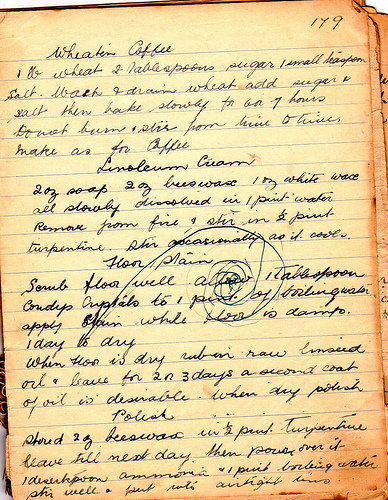 179
Wheatin Coffee
1 lb wheat 2 Tablespoons sugar 1 small teaspoon
Salt. Wash & drain wheat add sugar &
salt then bake slowly for 6 or 7 hours
Do not burn & stir from time to time.
Make as for Coffee
Linoleum Cream
2 oz soap 2 oz beeswax 1 oz white wax
all slowly dissolved in 1 pint water
Remove from fire & stir in ½ pint
turpentine. Stir occasionally as it cools.
Floor Stain
Scrub floor well allow 1 Tablespoon
Condys Crystals to 1 pint of boiling water
apply Stain while floor is damp.
1 day to dry
When floor is dry rub in raw linseed
oil & leave for 2 or 3 days a second coat
of oil is desirable. when dry polish
Polish
Shred 2 oz beeswax in ½ pint turpentine
leave till next day. then pour over it
1 dessertspoon ammonia & 1 pint boiling water
stir well & put into airtight tins.